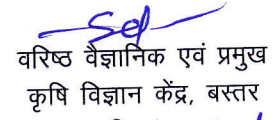 Sd/-
वरिष्ठ वैज्ञानिक एवं प्रमुख
कृषि विज्ञान केंद्र, बस्तर